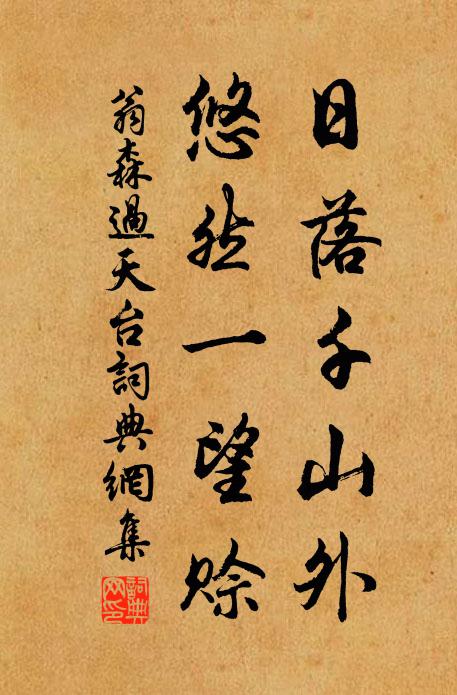 日落千山外
悠然一望赊
翁森過天台詞典網集
詞典網印